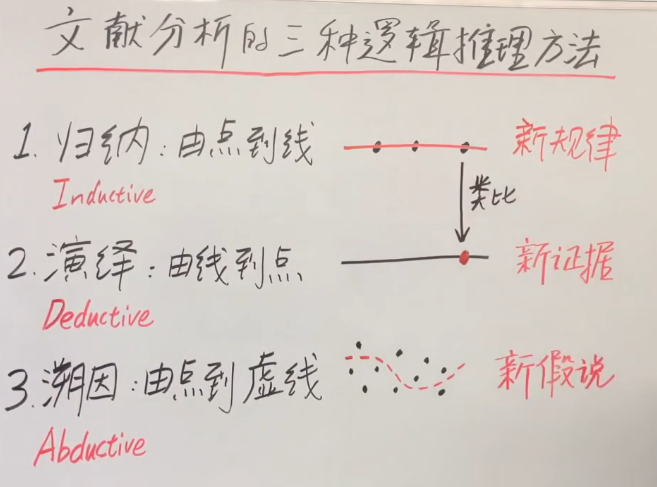 文献分析的三种逻辑推理方法
1. 归纳:由点到线 新规律
Inductive
类比
2. 演绎:由线到点 新证据
Deductive
3. 溯因:由点到虚线 新假说
Abductive